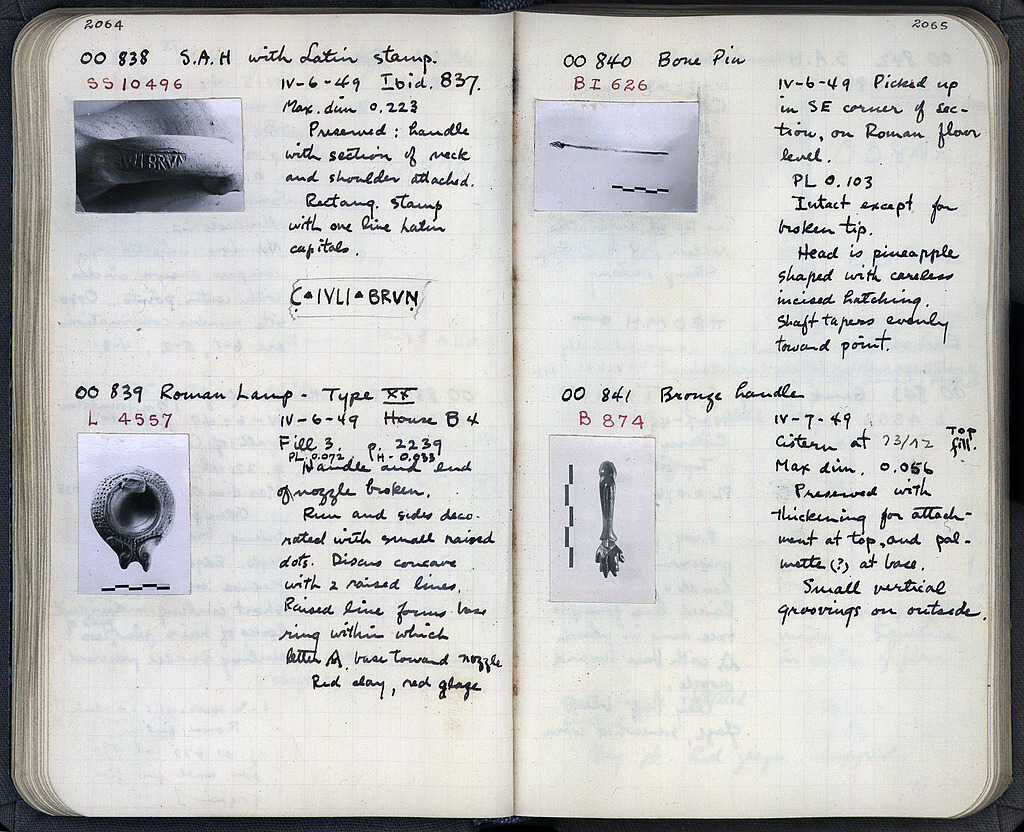 2064
OO 838 S.A.H with Latin stamp.
SS 10496
IV-6-49 Ibid. 837.
Max. dim 0.223
Preserved: handle
with section of neck
and shoulder attached.
Rectang. stamp
with one line Latin
capitals.
C▲IVLI▲BRVN
OO 839 Roman Lamp - Type XX
L 4557
IV-6-49 House B4
Fill 3. P. 2239
PL. 0.072 H - 0.033
Handle and end
of nozzle broken.
Rim and sides deco-
rated with small raised
dots. Discus concave
with 2 raised lines.
Raised line forms base
ring within which
letter A, base toward nozzle
Red clay, red glaze
2065
OO 840 Bone Pin
BI 626
IV-6-49 Picked up
in SE corner of sec-
tion, on Roman floor
level.
PL 0.103
Intact except for
broken tip.
Head is pineapple
shaped with careless
incised hatching.
Shaft tapers evenly
toward point.
OO 841 Bronze handle
B 874
IV-7-49
Cistern at 73/ΛΖ Top fill.
Max dim. 0.056
Preserved with
thickening for attach-
ment at top, and pal-
mette (?) at base.
Small vertical
groovings on outside.